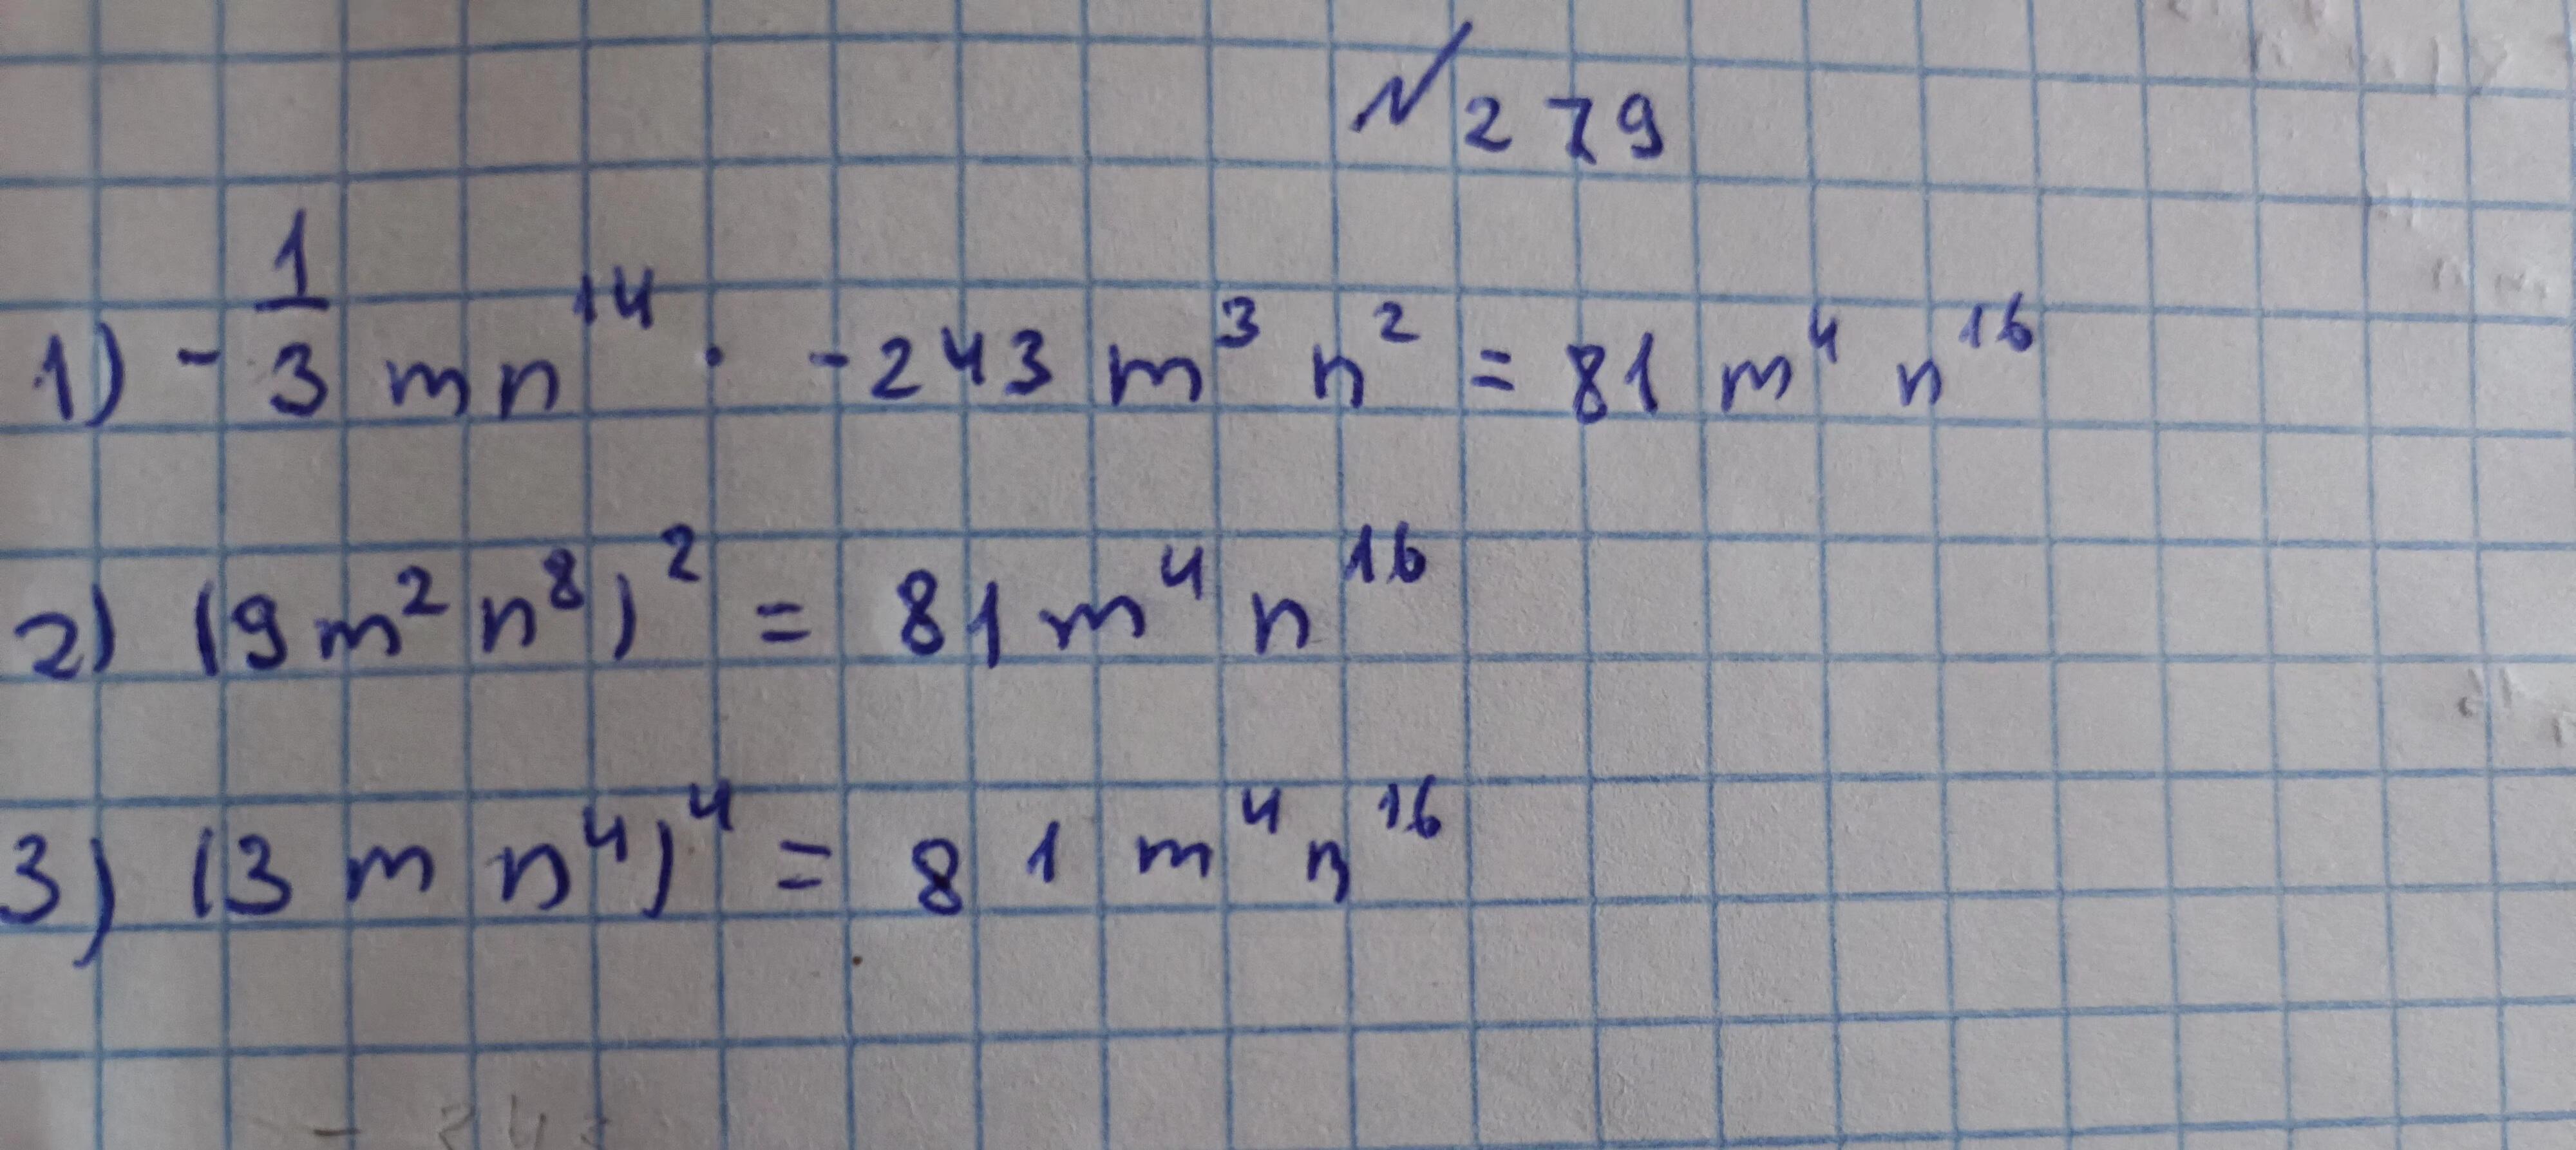 № 279
1) -1/3 mn¹⁴ · -243 m³ n² = 81 m⁴ n¹⁶
2) (9m² n⁸)² = 81 m⁴ n¹⁶
3) (3 m n⁴)⁴ = 81 m⁴ n¹⁶